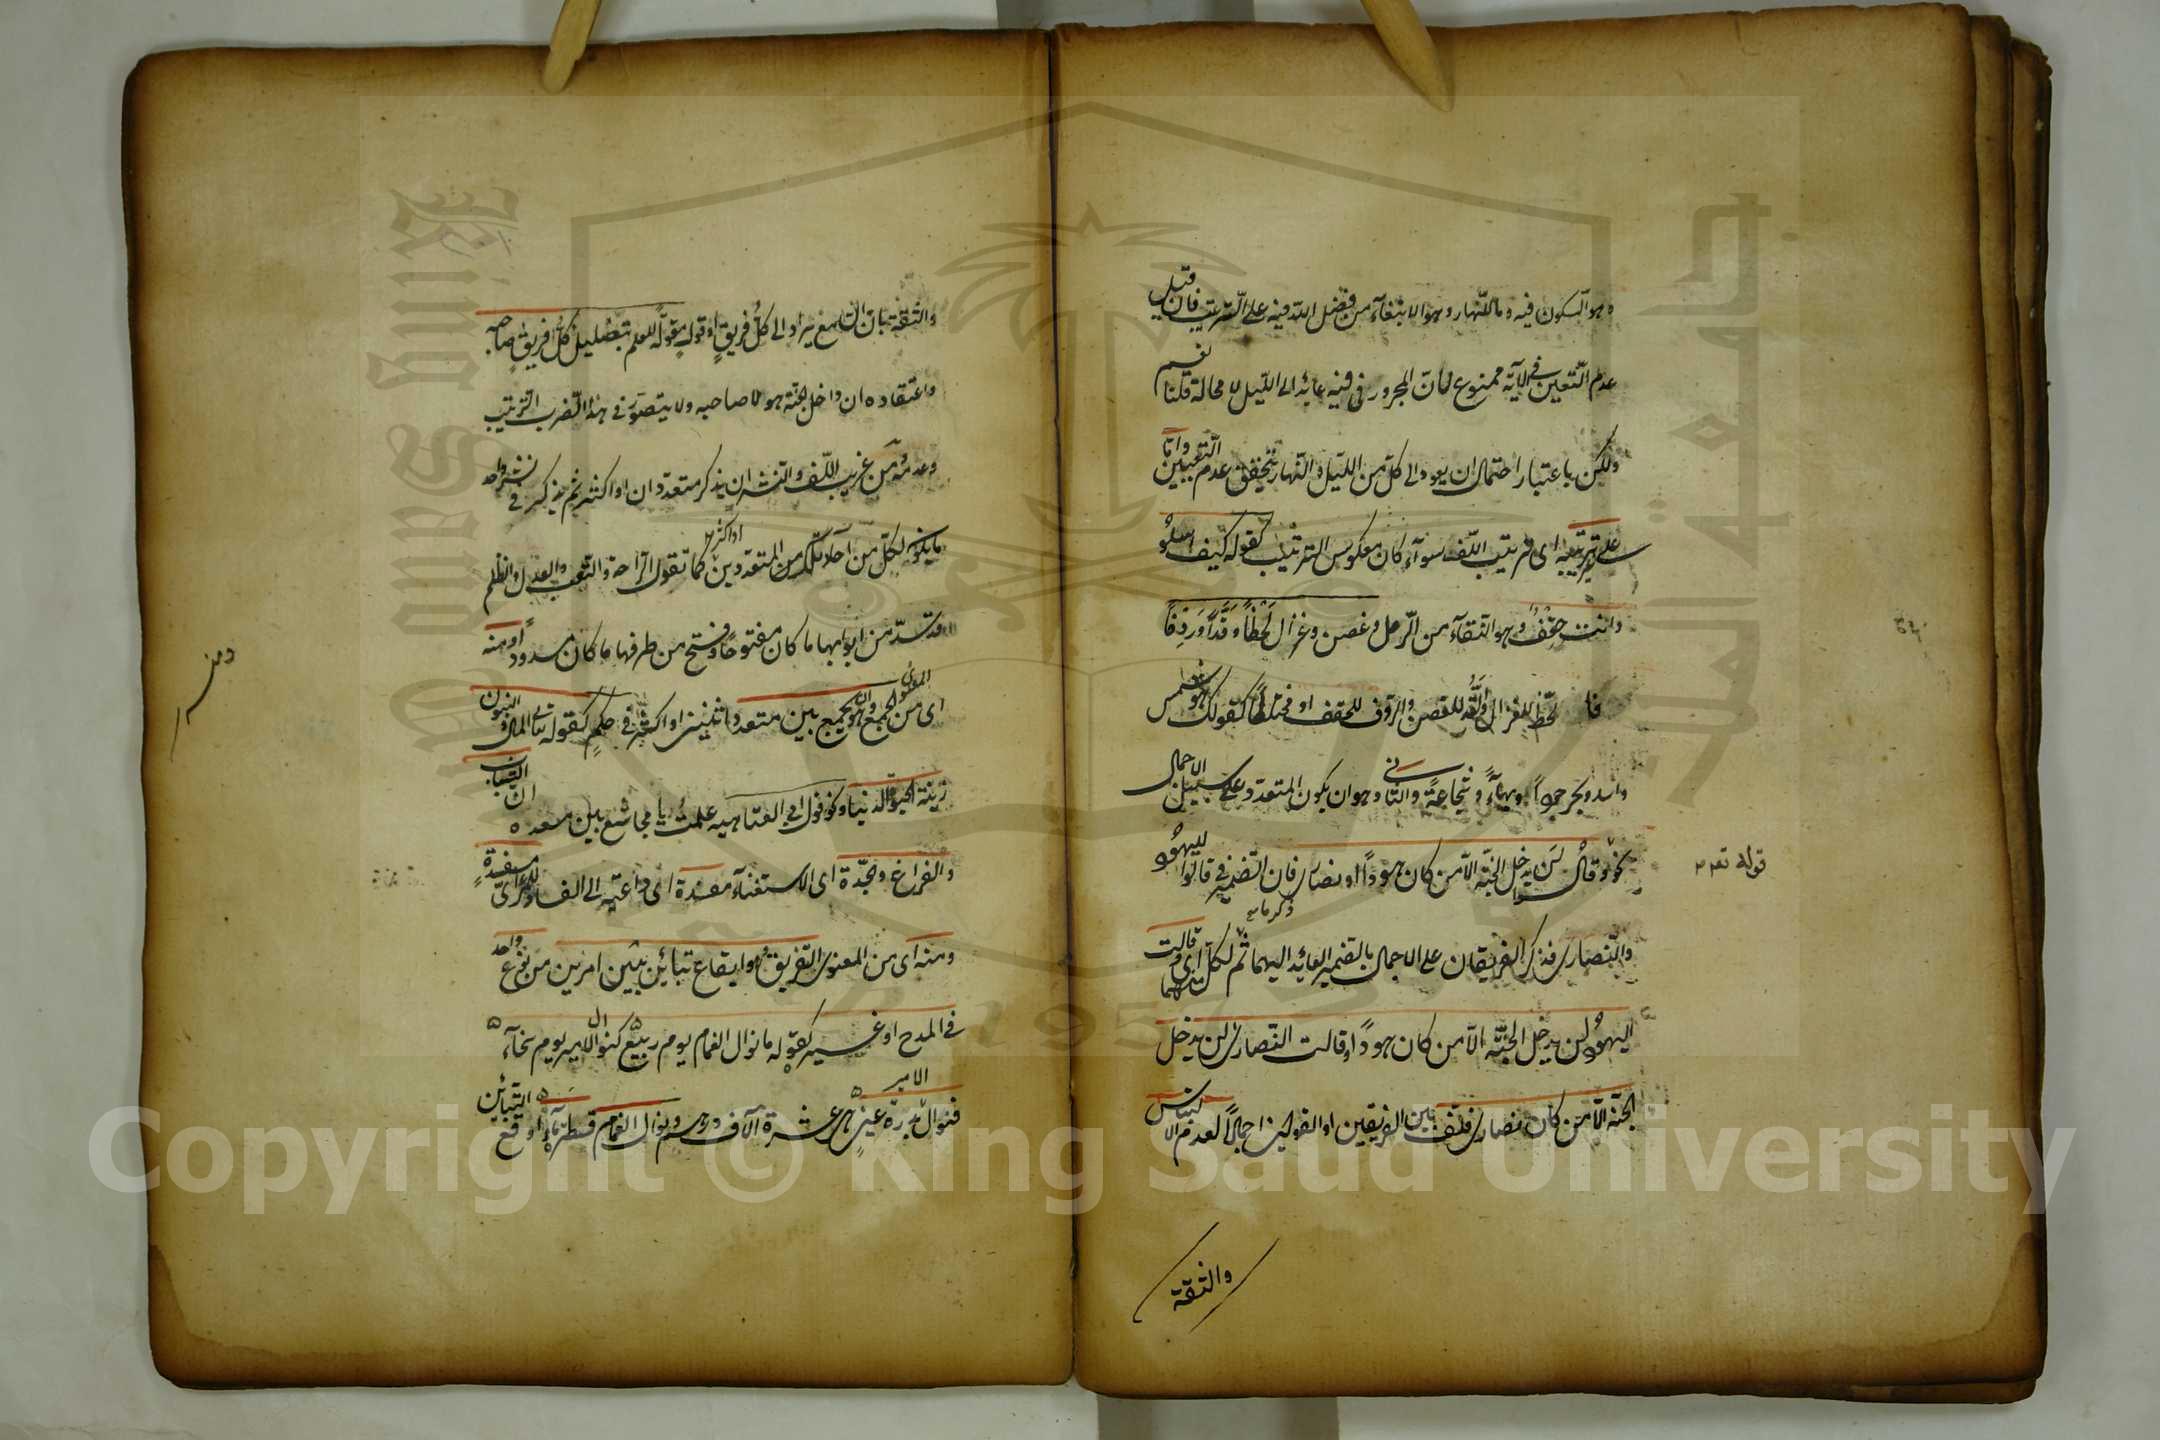 وهو السكون فيه وما للنهار وهو الابتغاء من فضل الله فيه على الترتيب فان قيل
عدم التعين في الآية ممنوع فان المجرور في فيه عائد الى الليل لا محالة قلنا نعم
ولكن باعتبار احتمال ان يعود الى كل من الليل والنهار يتحقق عدم التعيين واما
على غير ترتيبه اى ترتيب اللف سوآء كان معكوس الترتيب كقوله كيف اسلو
وانت حقف وهو النقآء من الرمل وغصن وغزال لحظا وقدا وردفا
فاللحظ للغزال والقد للغصن والردف للحقف او مختلطا كقولك هو شمس
واسد وبحر جودا وبهآء وشجاعة والثانى وهو ان يكون المتعدد على سبيل الاجمال
نحو وقالوا لن يدخل الجنة الا من كان هودا او نصارى فان الضمير في قالوا لليهود
والنصارى فذكر الفريقان على الاجمال بالضمير العائد اليهما ثم ذكر ما لكل منهما اى وقالت
اليهود لن يدخل الجنة الا من كان هودا وقالت النصارى لن يدخل
الجنة الا من كان نصارى فلف بين الفريقين او القولين اجمالا لعدم الالتباس
والثقة
قوله تعه
والثقة بان السامع يرد الى كل فريق او قول مقوله للعلم بتضليل كل فريق صاحبه
واعتقاده ان داخل الجنة هو لا صاحبه ولا يتصور في هذا الضرب الترتيب
وعدمه ومن غريب اللف والنشر ان يذكر متعددان او اكثر ثم يذكر في نشر واحد
ما يكون لكل من آحاد كل من المتعددين او اكثر كما تقول الراحة والتعب والعدل والظلم
قد سد من ابوابها ما كان مفتوحا وفتح من طرفها ما كان مسدودا ومنه
اى من المعنوى الجمع وهو ان يجمع بين متعدد اثنين او اكثر في حكم كقوله تعالى المال والبنون
زينة الحيوة الدنيا ونحو قول ابى العتاهية علمت يا مجاشع بن مسعده ان الشباب
والفراغ والجدة اى الاستغنآء مفسدة اى داعية الى الفساد للمرء اى مفسدة
ومنه اى من المعنوى التفريق وهو ايقاع تباين بين امرين من نوع واحد
في المدح او غيره كقوله ما نوال الغمام يوم ربيع كنوال الامير يوم سخآء
فنوال الامير بدرة عين هى عشرة آلاف درهم ونوال الغمام قطرة مآء اوقع التباين
ومن